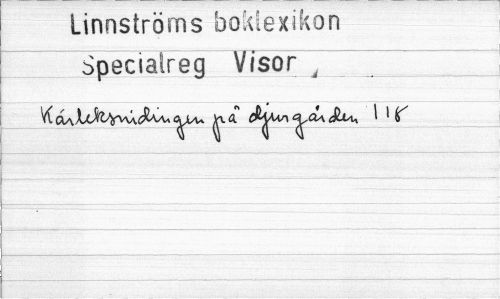 Linnströms boklexikon
Specialreg Visor
Kärleksnidingen på djurgården 118